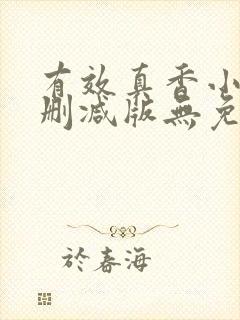 有效真香小
删减版無免
於春海